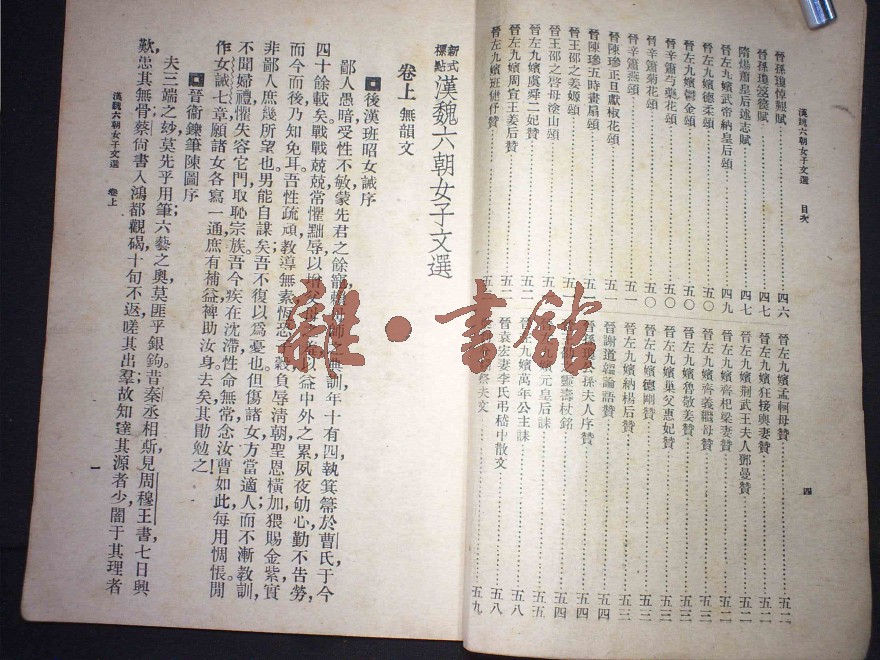 漢魏六朝女子文選　目次
四
晉孫瓊悼艱賦……四六
晉孫瓊箜篌賦……四七
隋煬蕭皇后述志賦……四七
晉左九嬪武帝納皇后頌……四九
晉左九嬪德柔頌……五〇
晉左九嬪鬱金頌……五〇
晉辛蕭芍藥花頌……五〇
晉辛蕭菊花頌……五〇
晉辛蕭燕頌……五一
晉陳玢正旦獻椒花頌
晉陳玢五時畫扇頌……五一
晉王邵之姜嫄頌
晉王邵之啓母塗山頌
晉左九嬪虞舜二妃贊……五二
晉左九嬪周宣王姜后贊
晉左九嬪班倢伃贊
晉左九嬪孟軻母贊……五二
晉左九嬪狂接輿妻贊……五二
晉左九嬪荆武王夫人鄧曼贊……五二
晉左九嬪齊杞梁妻贊……五三
晉左九嬪齊義繼母贊……五三
晉左九嬪魯敬姜贊……五三
晉左九嬪巢父惠妃贊……五三
晉左九嬪德剛贊……五三
晉左九嬪納楊后贊……五三
晉謝道韞論語贊……五四
孫夫人序贊……五四
靈壽杖銘……五四
元皇后誄……五五
九嬪萬年公主誄……五八
晉袁宏妻李氏弔嵇中散文……五八
祭夫文……五九
新式標點漢魏六朝女子文選
卷上　無韻文
後漢班昭女誡序
鄙人愚暗受性不敏蒙先君之餘寵賴母師之典訓年十有四執箕箒於曹氏于今
四十餘載矣戰戰兢兢常懼黜辱以增父母之羞以益中外之累夙夜劬心勤不告勞，
而今而後乃知免耳吾性疏頑教導無素恆恐子穀負辱清朝聖恩橫加猥賜金紫實
非鄙人庶幾所望也男能自謀矣吾不復以爲憂也但傷諸女方當適人而不漸教訓，
不聞婦禮懼失容它門取恥宗族吾今疾在沈滯性命無常念汝曹如此每用惆悵閒
作女誡七章願諸女各寫一通庶有補益裨助汝身去矣其勖勉之
晉衞鑠筆陳圖序
夫三端之妙莫先乎用筆六藝之奧莫匪乎銀鉤昔秦丞相斯見周穆王書七日興
歎患其無骨蔡尙書入鴻都觀碣十旬不返嗟其出羣故知達其源者少闇于其理者
漢魏六朝女子文選　卷上
一
雜·書館